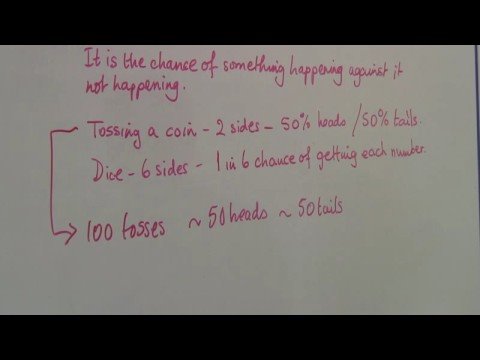 It is the chance of something happening against it
not happening.
Tossing a coin - 2 sides - 50% heads / 50% tails.
Dice - 6 sides - 1 in 6 chance of getting each number.
100 tosses ~ 50 heads ~ 50 tails